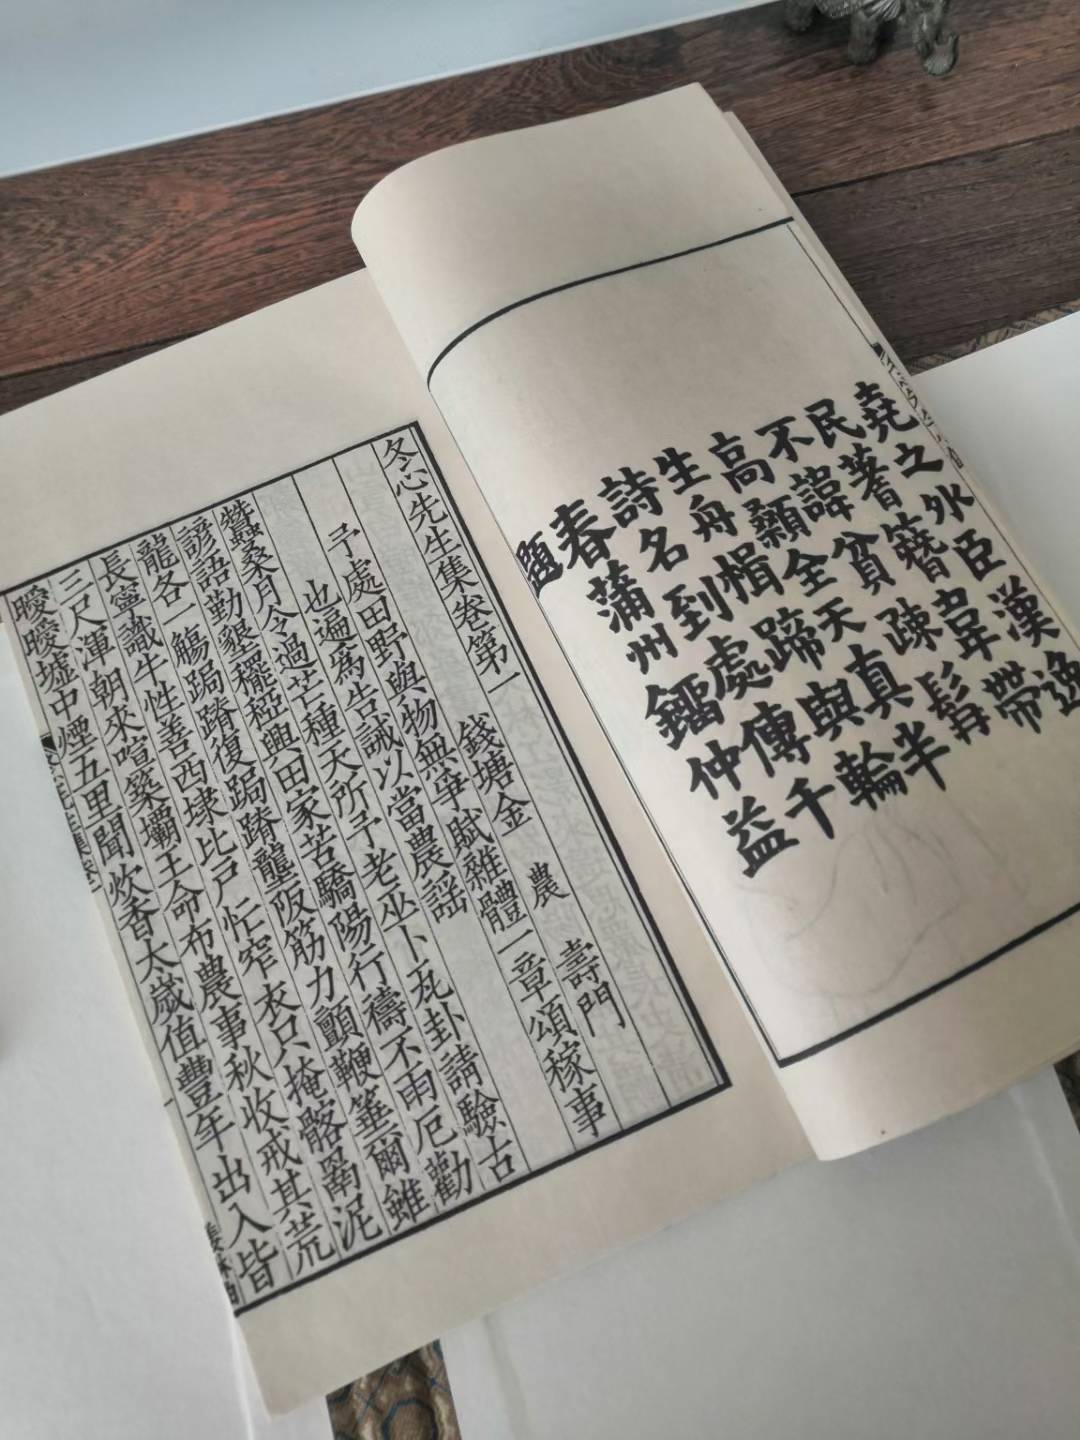 堯之外臣漢逸
民蓍簪韋帶
不諱貧疎髯
高顙全天真半
生舟楫蹄與輪
詩名到處傳千
春蒲州鐂仲益
題
冬心先生集卷第一
錢塘金 農 壽門
予處田野與物無爭賦雜體一章頌稼事
也遍爲告誡以當農謡
蠶桑月令過芒種天所予老巫卜瓦卦請驗古
諺語勤墾䆉稏興田家苦驕陽行禱不雨厄勸
龍各一觴跼蹐復跼蹐壟阪筋力顫鞭箠爾雖
長寧識牛性善西埭比戸忙窄衣只掩骼罱泥
三尺渾朝來喧築壩王命布農事秋收戒其荒
曖曖墟中煙五里聞炊香太歲值豐年出入皆